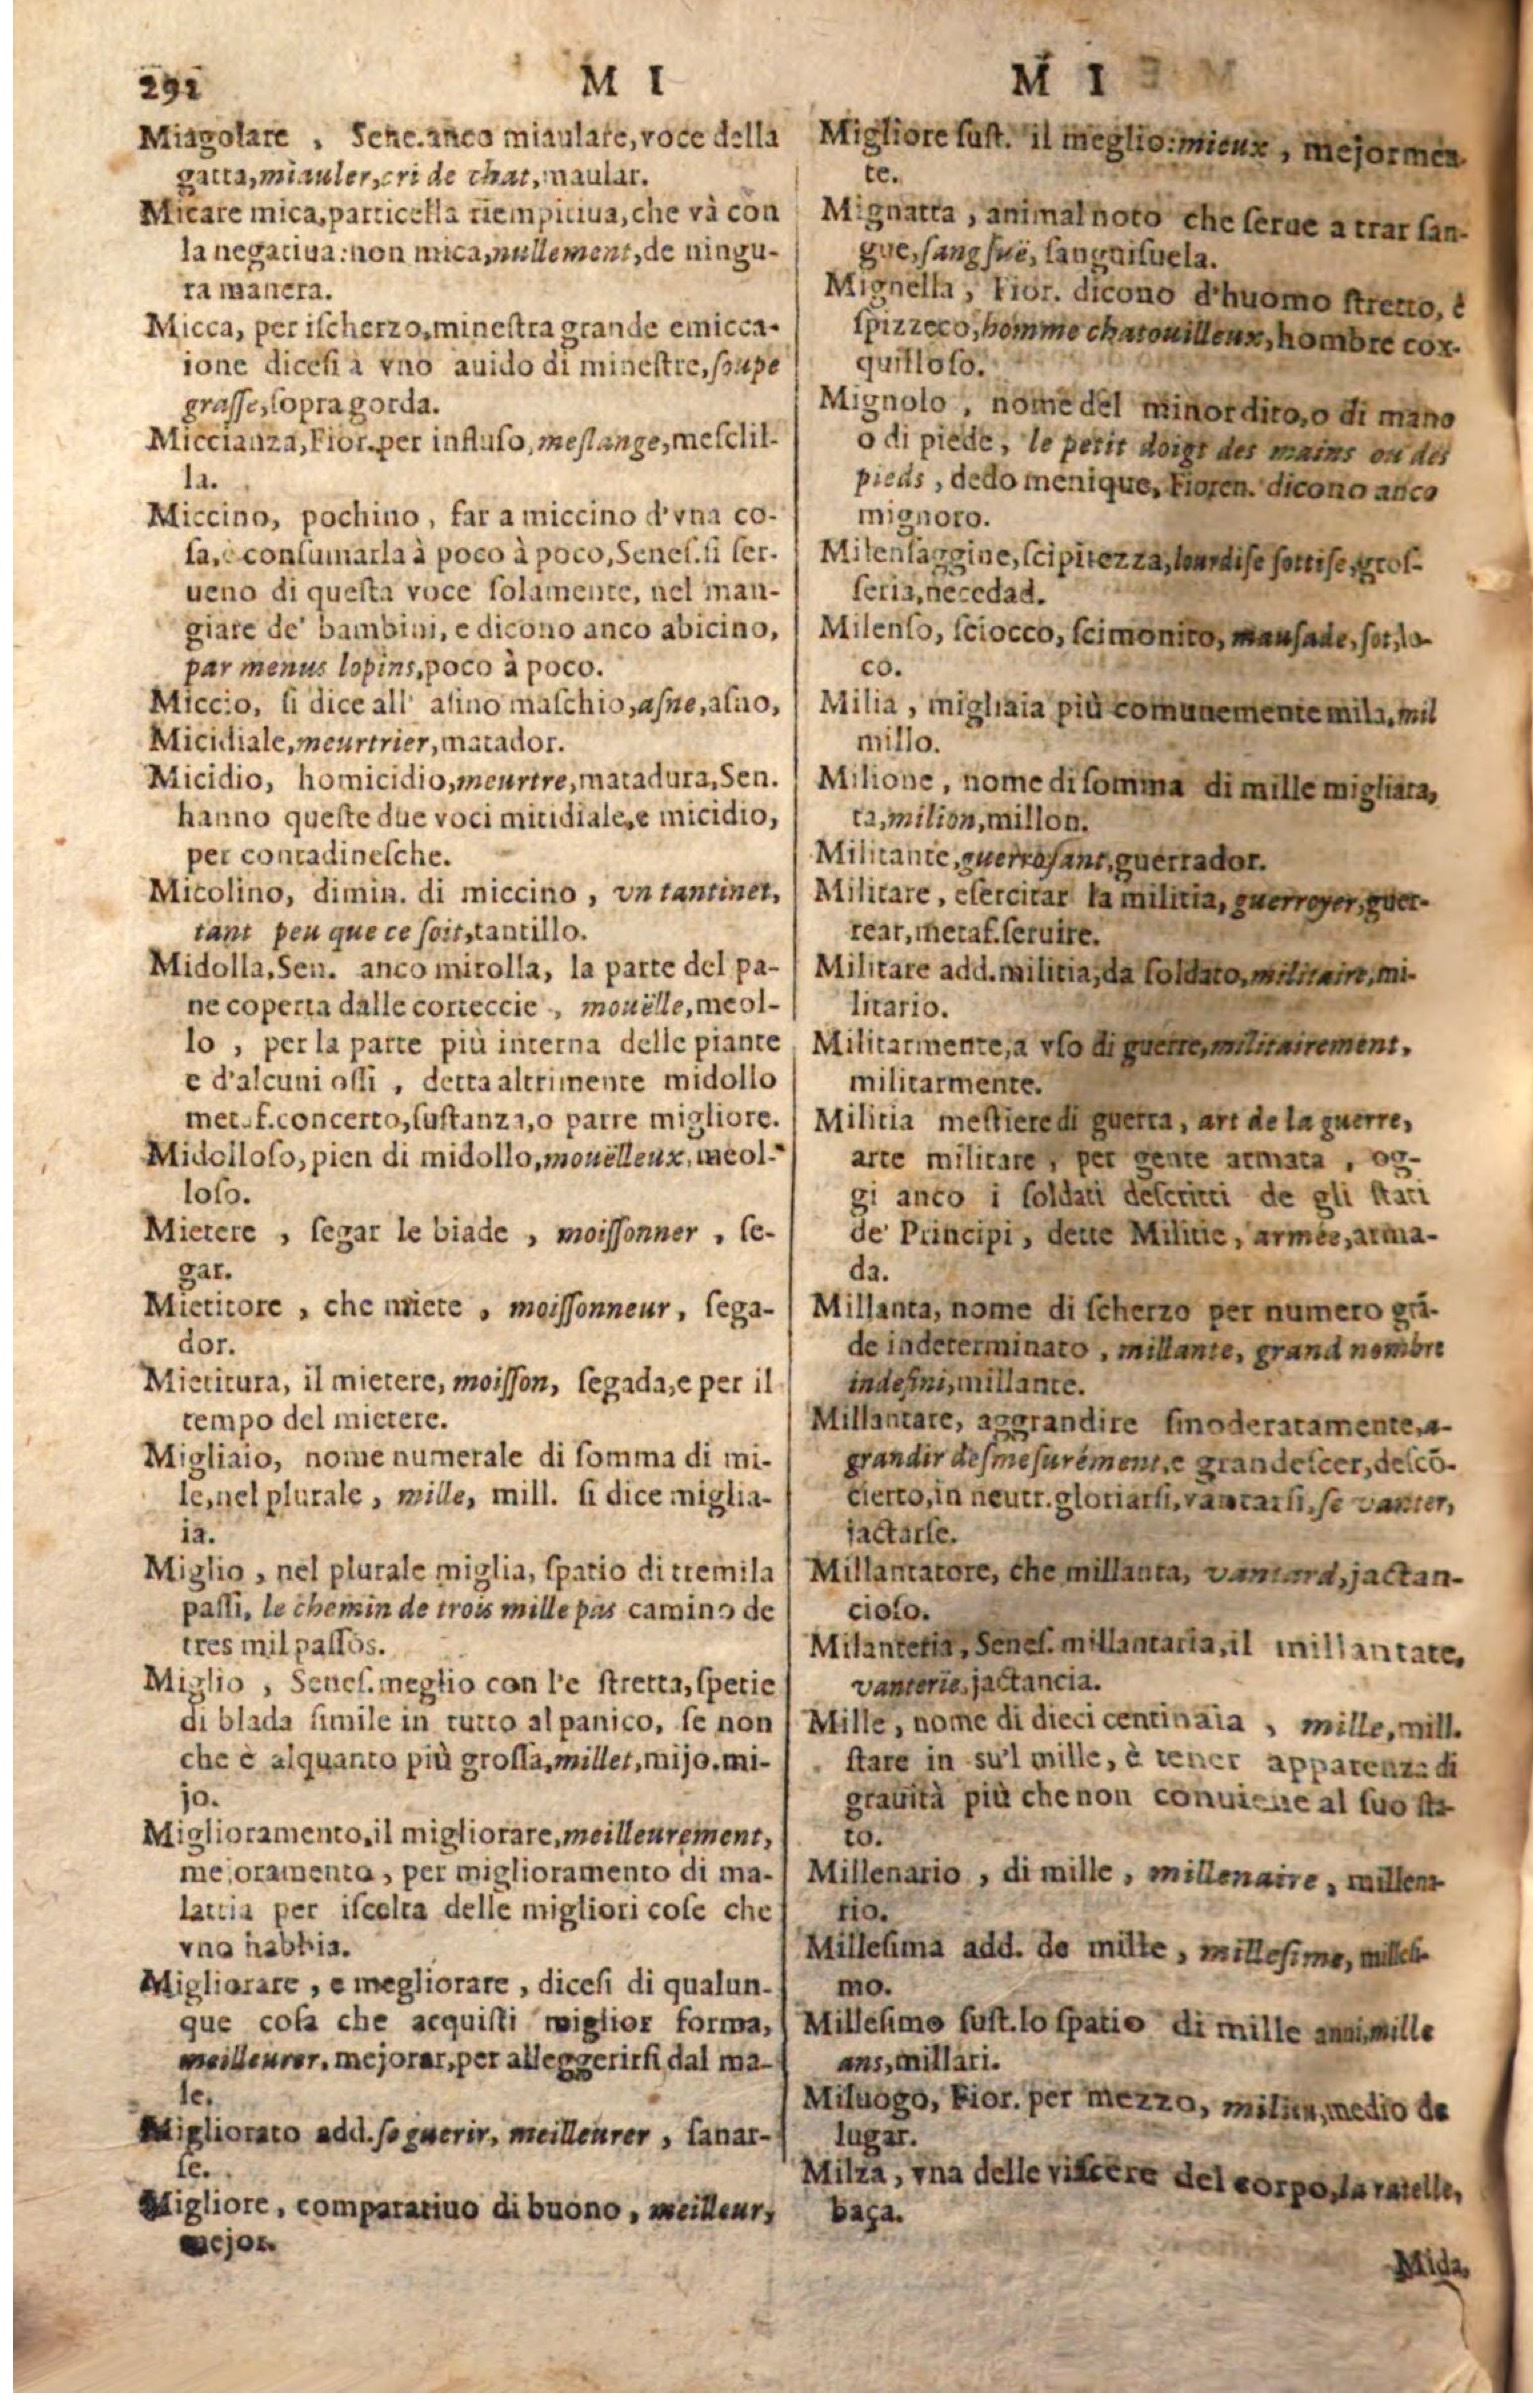 292
M I
Miagolare , Sene.anco miaulare, voce della
gatta, miauler, cri de chat, maular.
Micare mica, particella riempitiua, che và con
la negatiua: non mica, nullement, de ningu-
ra manera.
Micca, per iſcherzo, mineſtra grande e micca-
ione diceſi à vno auido di mineſtre, ſoupe
graſſe, ſopra gorda.
Miccianza, Fior. per influſo, meſlange, meſclil-
la.
Miccino, pochino, far a miccino d'vna co-
ſa, è conſumarla à poco à poco, Seneſ. ſi ſer-
ueno di queſta voce ſolamente, nel man-
giare de' bambini, e dicono anco abicino,
par menus lopins, poco à poco.
Miccio, ſi dice all' aſino maſchio, aſne, aſno,
Micidiale, meurtrier, matador.
Micidio, homicidio, meurtre, matadura, Sen.
hanno queſte due voci micidiale, e micidio,
per contadineſche.
Micolino, dimin. di miccino , vn tantinet,
tant peu que ce ſoit, tantillo.
Midolla, Sen. anco mirolla, la parte del pa-
ne coperta dalle corteccie , mouëlle, meol-
lo , per la parte più interna delle piante
e d'alcuni oſſi , detta altrimente midollo
metaf. concerto, ſuſtanza, o parte migliore.
Midolloſo, pien di midollo, mouëlleux, meol-
loſo.
Mietere , ſegar le biade , moiſſonner , ſe-
gar.
Mietitore , che miete , moiſſonneur, ſega-
dor.
Mietitura, il mietere, moiſſon, ſegada, e per il
tempo del mietere.
Migliaio, nome numerale di ſomma di mi-
le, nel plurale , mille, mill. ſi dice miglia-
ia.
Miglio , nel plurale miglia, ſpatio di tremila
paſſi, le chemin de trois mille pas camino de
tres mil paſſos.
Miglio , Seneſ. meglio con l'e ſtretta, ſpetie
di blada ſimile in tutto al panico, ſe non
che è alquanto più groſſa, millet, mijo. mi-
jo.
Miglioramento, il migliorare, meilleurement,
mejoramento, per miglioramento di ma-
lattia per iſcelta delle migliori coſe che
vno habbia.
Migliorare , e megliorare , diceſi di qualun-
que coſa che acquiſti miglior forma,
meilleurer, mejorar, per alleggerirſi dal ma-
le.
Migliorato add. ſe guerir, meilleurer , ſanar-
ſe.
Migliore, comparatiuo di buono , meilleur,
mejor.
M I
Migliore ſuſt. il meglio: mieux , mejormen-
te.
Mignatta , animal noto che ſerue a trar ſan-
gue, ſangſuë, ſanguiſuela.
Mignella , Fior. dicono d'huomo ſtretto, è
ſpizzeco, homme chatouilleux, hombre cox-
quilloſo.
Mignolo , nome del minor dito, o di mano
o di piede, le petit doigt des mains ou des
pieds , dedo menique, Fioren. dicono anco
mignoro.
Milenſaggine, ſcipitezza, lourdiſe ſottiſe, groſ-
ſeria, necedad.
Milenſo, ſciocco, ſcimonito, mauſade, ſot, lo-
co.
Milia , migliaia più comunemente mila, mil
millo.
Milione , nome di ſomma di mille migliara,
ta, milion, millon.
Militante, guerroſant, guerrador.
Militare, eſercitar la militia, guerroyer, guer-
rear, metaf. ſeruire.
Militare add. militia, da ſoldato, militaire, mi-
litario.
Militarmente, a vſo di guerre, militairement,
militarmente.
Militia meſtiere di guerra, art de la guerre,
arte militare , per gente armata , og-
gi anco i ſoldati deſcritti de gli ſtati
de' Principi, dette Militie, armée, arma-
da.
Millanta, nome di ſcherzo per numero grã-
de indeterminato , millante, grand nombre
indefini, millante.
Millantare, aggrandire ſmoderatamente, a-
grandir deſmeſurément, e grandeſcer, deſcõ-
cierto, in neutr. gloriarſi, vantarſi, ſe vanter,
jactarſe.
Millantatore, che millanta, vantard, jactan-
cioſo.
Milanteria, Seneſ. millantaria, il millantare,
vanterie, jactancia.
Mille, nome di dieci centinaia , mille, mill.
ſtare in su'l mille, è tener apparenza di
grauità più che non conuiene al ſuo ſta-
to.
Millenario , di mille , millenaire , millena-
rio.
Milleſima add. de mille , milleſime, milleſi-
mo.
Milleſimo ſuſt. lo ſpatio di mille anni, mille
ans, millari.
Miluogo, Fior. per mezzo, milieu, medio de
lugar.
Milza, vna delle viſcere del corpo, la ratelle,
baça.
Mida,